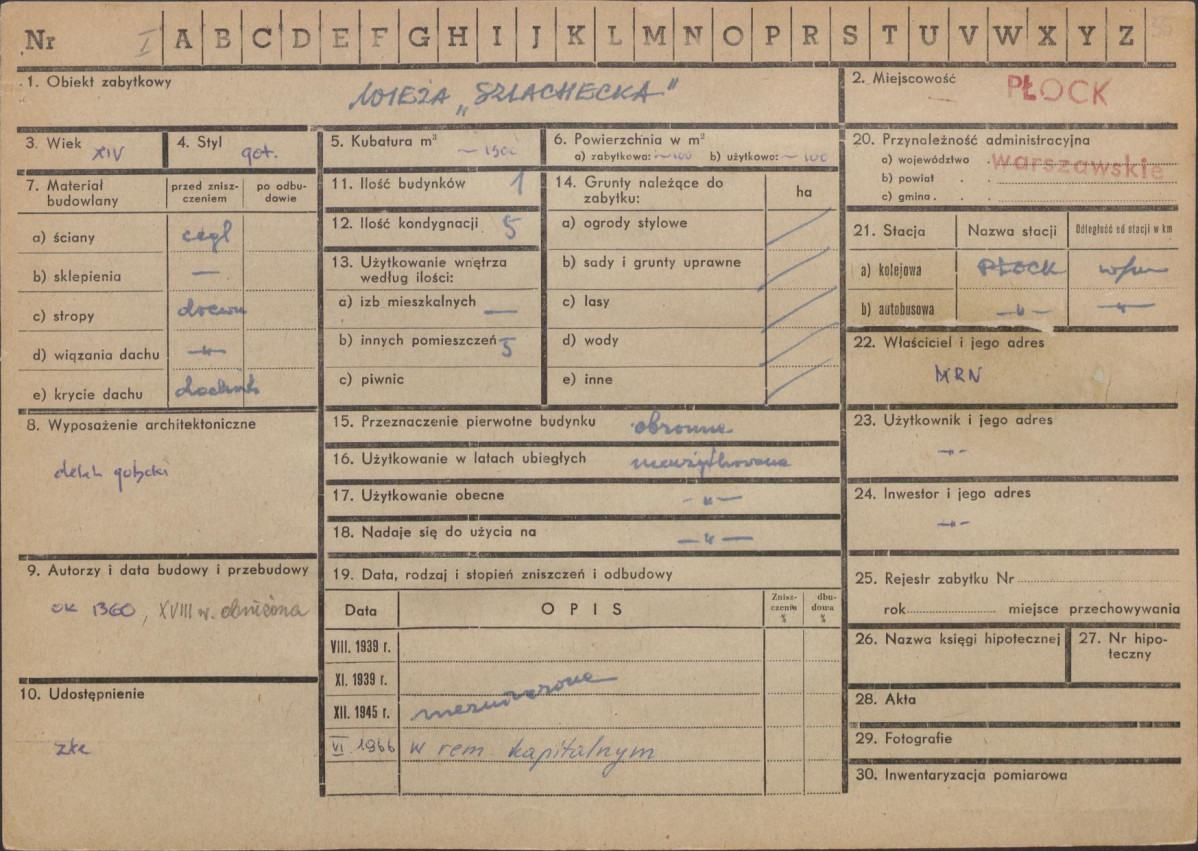 Nr I A B C D E F G H I J K L M N O P R S T U V W X Y Z
1. Obiekt zabytkowy
WIEŻA „SZLACHECKA"
2. Miejscowość
PŁOCK
3. Wiek XIV
4. Styl got.
5. Kubatura m³
~ 1500
6. Powierzchnia w m²
a) zabytkowa: ~100 b) użytkowa: ~ 100
20. Przynależność administracyjna
a) województwo warszawskie
b) powiat . .
c) gmina . . .
7. Materiał budowlany
przed zniszczeniem
po odbudowie
a) ściany cegł
b) sklepienia —
c) stropy drewn
d) wiązania dachu —„—
e) krycie dachu dachówk
11. Ilość budynków 1
12. Ilość kondygnacji 5
13. Użytkowanie wnętrza
według ilości:
a) izb mieszkalnych —
b) innych pomieszczeń 5
c) piwnic
14. Grunty należące do
zabytku:
ha
a) ogrody stylowe
b) sady i grunty uprawne
c) lasy
d) wody
e) inne
21. Stacja Nazwa stacji Odległość od stacji w km
a) kolejowa PŁOCK
b) autobusowa —„— —„—
22. Właściciel i jego adres
MRN
8. Wyposażenie architektoniczne
detal gotycki
15. Przeznaczenie pierwotne budynku obronne
16. Użytkowanie w latach ubiegłych nieużytkowana
17. Użytkowanie obecne -„—
18. Nadaje się do użycia na —„—
23. Użytkownik i jego adres
-„-
24. Inwestor i jego adres
-„-
9. Autorzy i data budowy i przebudowy
ok 1360, XVIII w. obniżona
10. Udostępnienie
19. Data, rodzaj i stopień zniszczeń i odbudowy
Data OPIS Zniszczenia % dbudowa %
VIII. 1939 r.
XI. 1939 r.
XII. 1945 r. niezniszczone
VI. 1966 w rem. kapitalnym
25. Rejestr zabytku Nr
rok miejsce przechowywania
26. Nazwa księgi hipotecznej
27. Nr hipoteczny
28. Akta
29. Fotografie
30. Inwentaryzacja pomiarowa